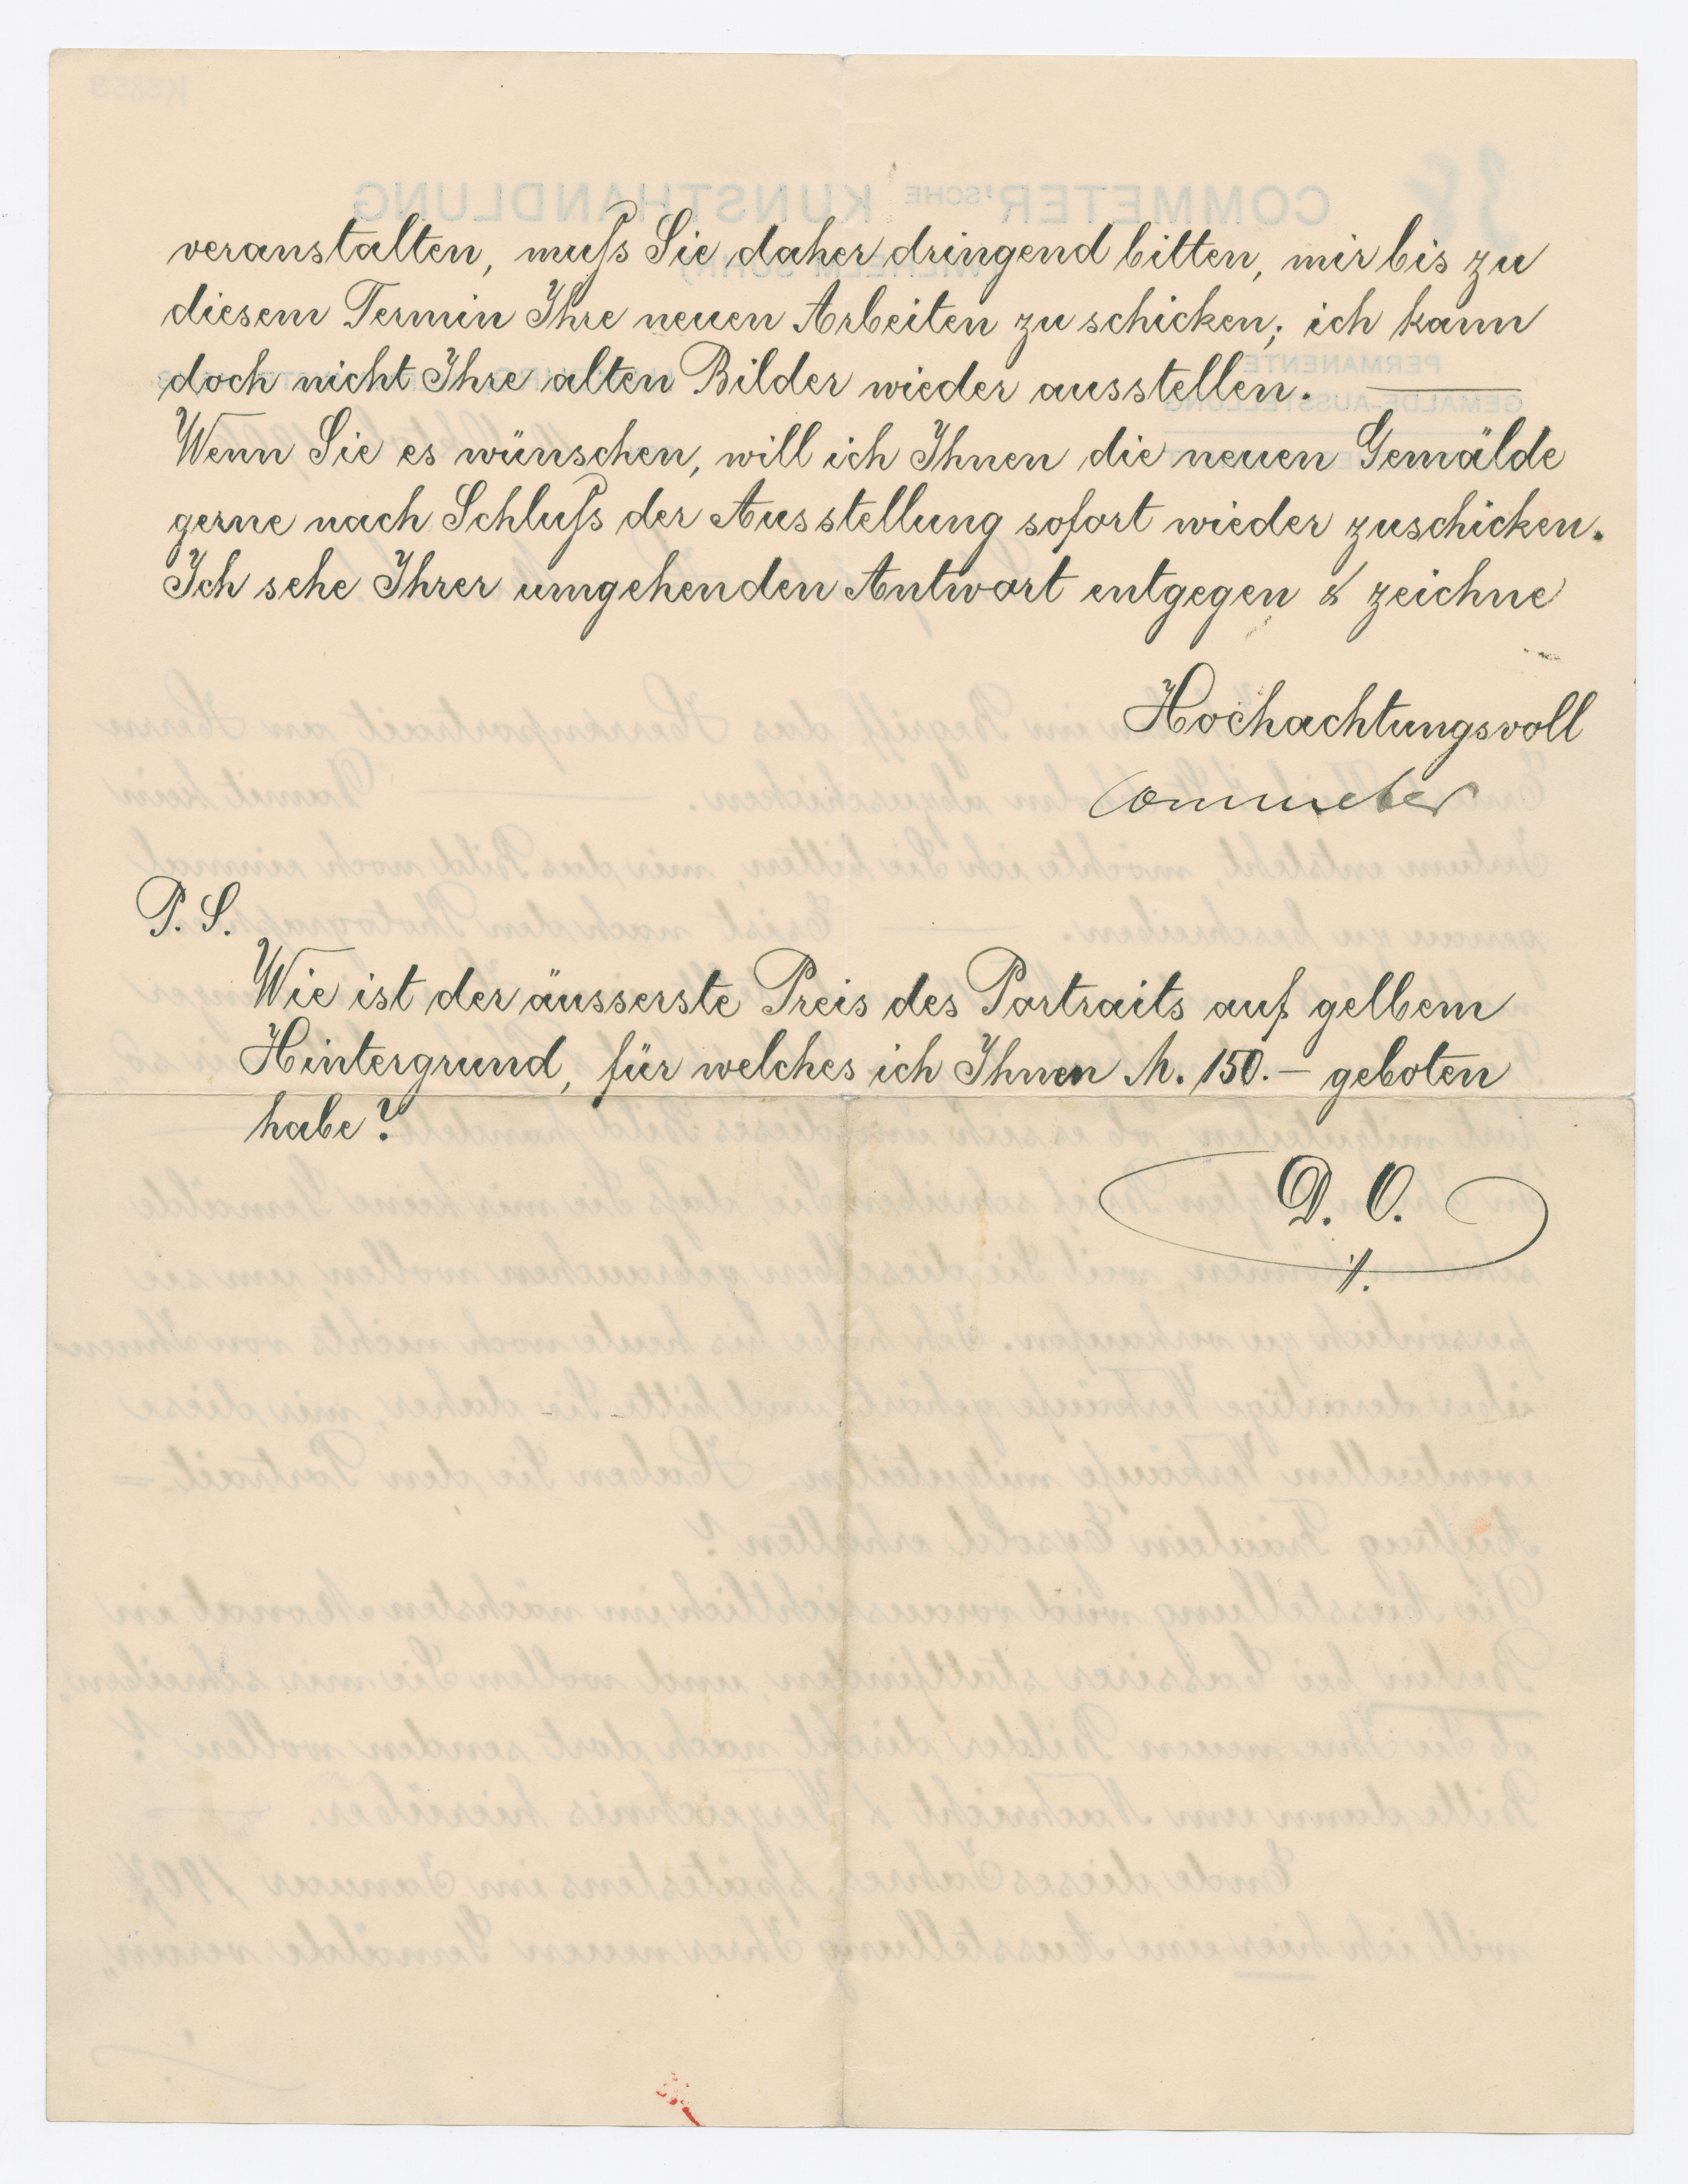 veranstalten, muſs Sie daher dringend bitten, mir bis zu
diesem Termin Ihre neuen Arbeiten zu schicken; ich kann
doch nicht Ihre alten Bilder wieder ausstellen. ——
Wenn Sie es wünschen, will ich Ihnen die neuen Gemälde
gerne nach Schluſs der Ausstellung sofort wieder zuschicken.
Ich sehe Ihrer umgehenden Antwort entgegen & zeichne
Hochachtungsvoll
Commeter
P. S.
Wie ist der äusserste Preis des Portraits auf gelbem
Hintergrund, für welches ich Ihnen M. 150.– geboten
habe?
D. O.